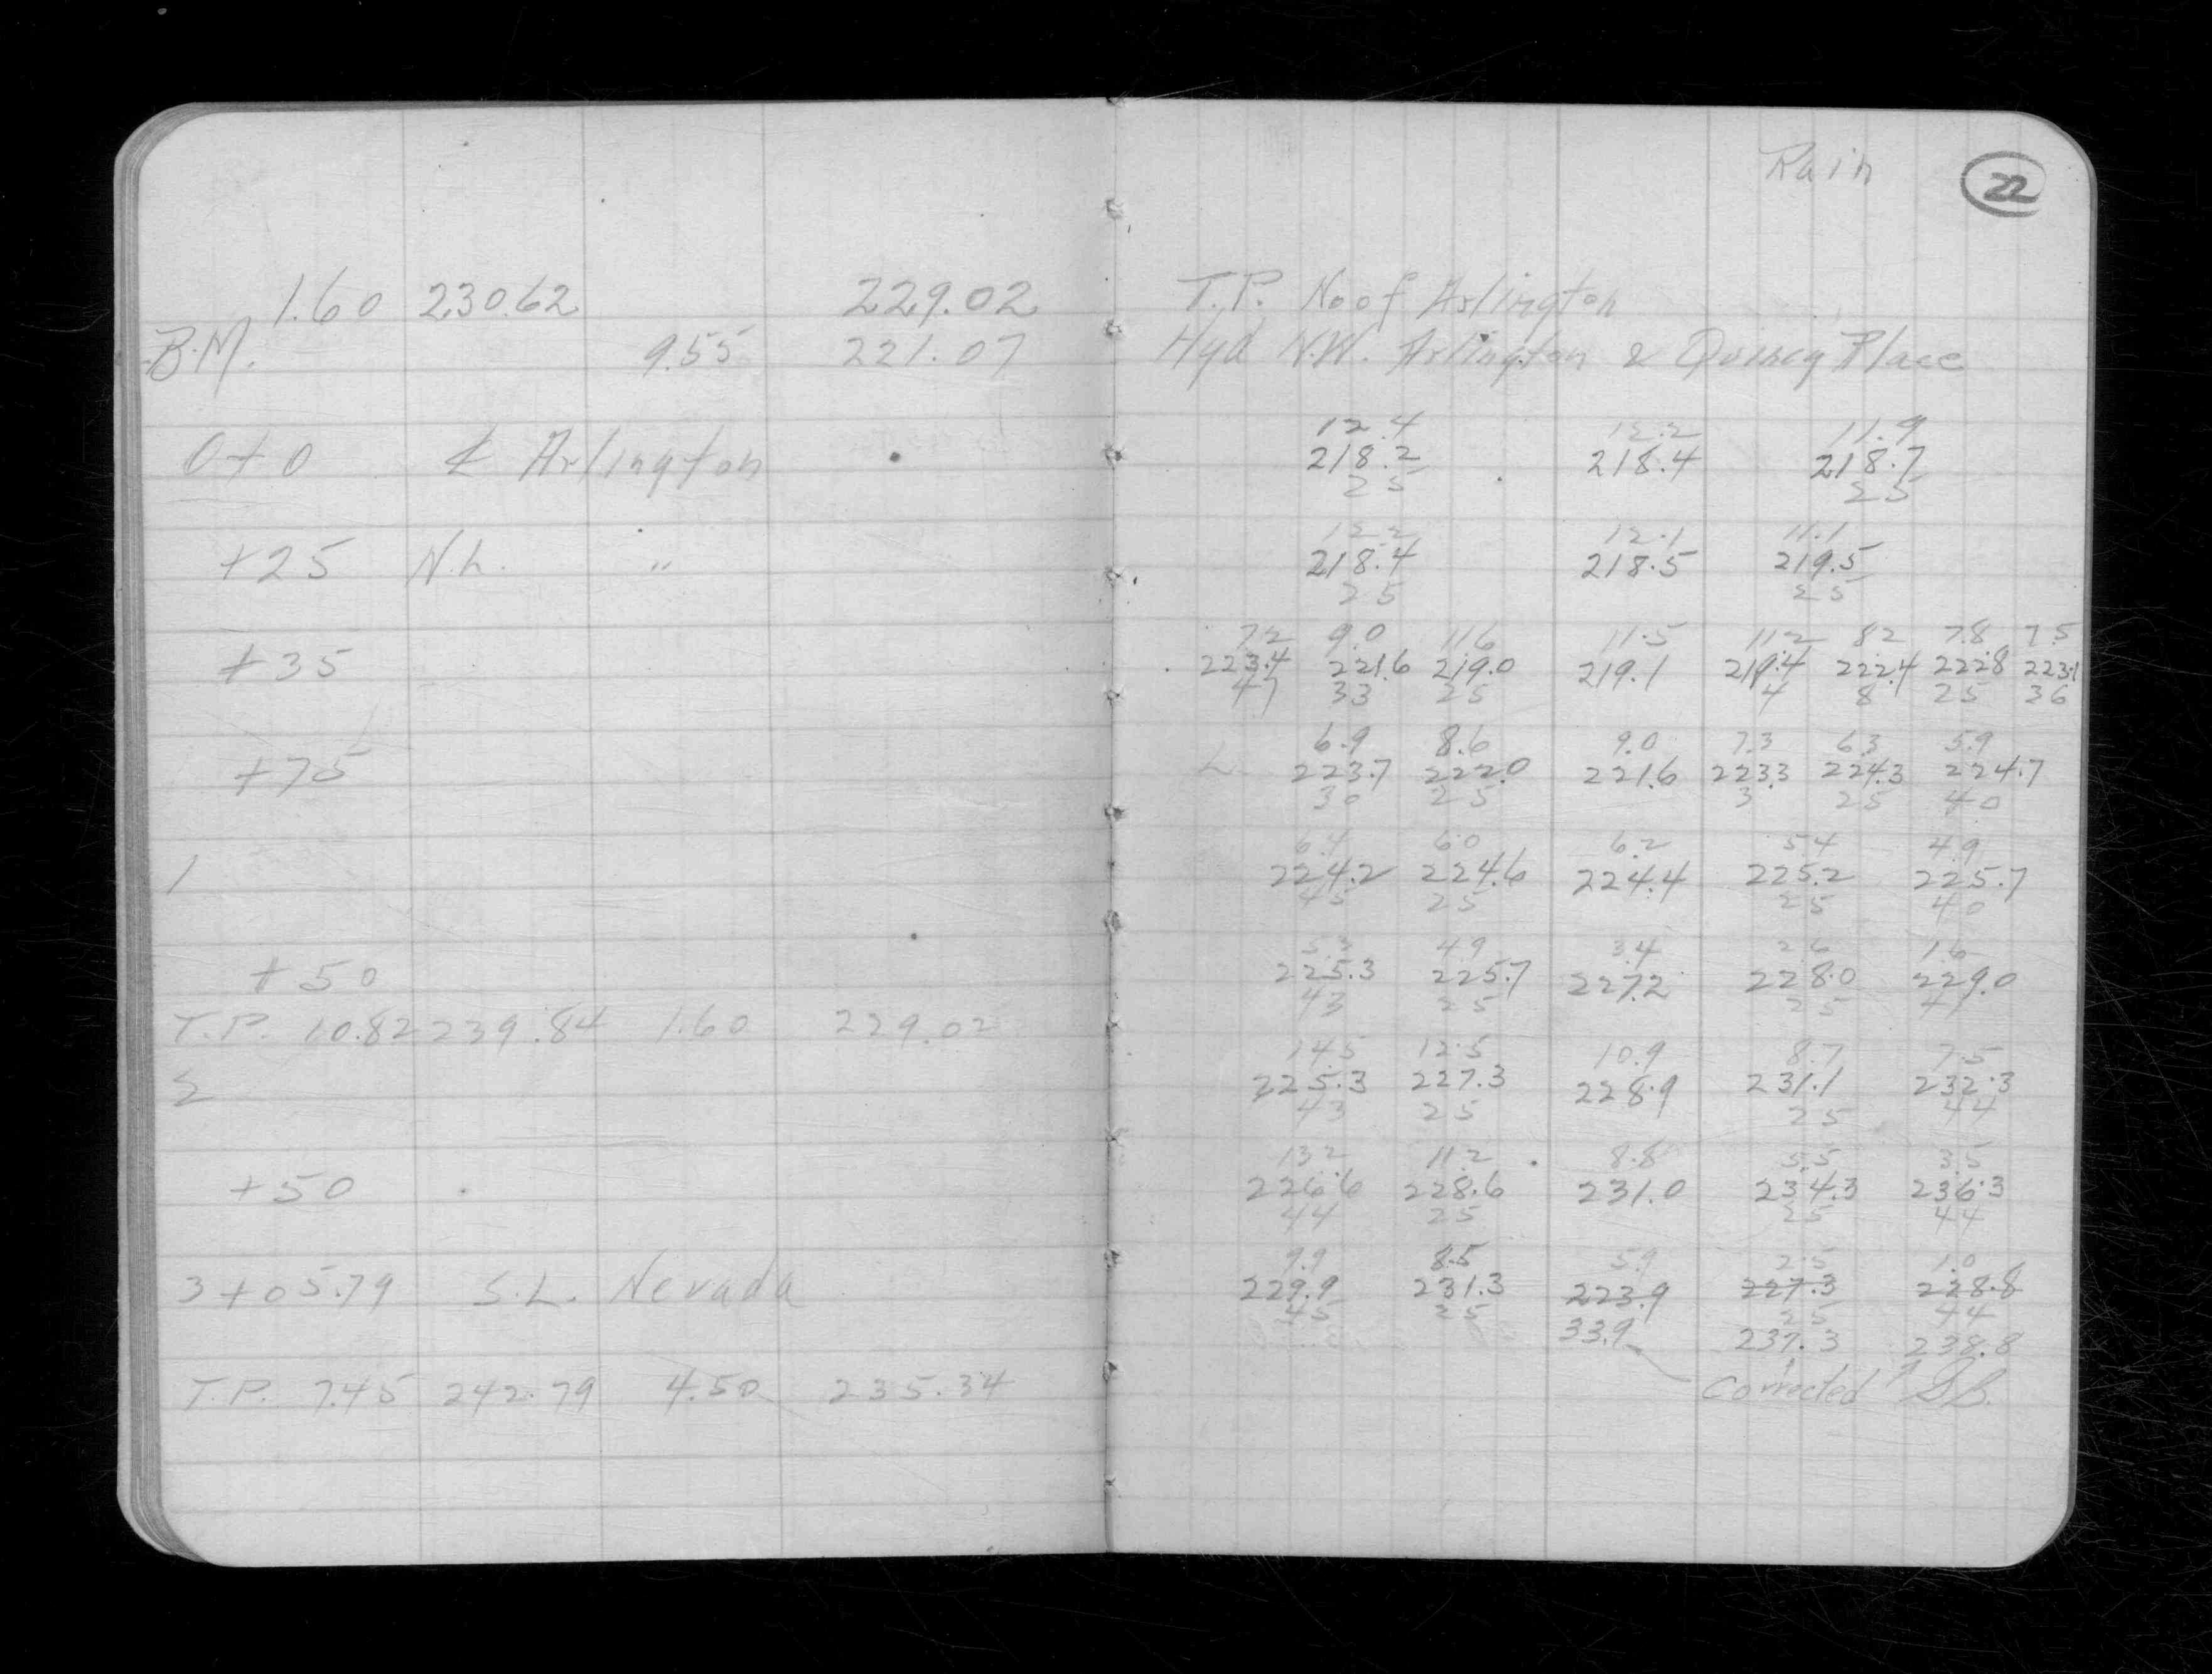 Rain 22
1.60 230.62 229.02 T.P. No of Arlington
B.M. 9.55 221.07 Hyd N.W. Arlington & Quincy Place
12.4 12.2 11.9
0+0 ℄ Arlington 218.2 218.4 218.7
25 25
12.2 12.1 11.1
+25 N.L. " 218.4 218.5 219.5
25 25
7.2 9.0 11.6 11.5 11.2 8.2 7.8 7.5
+35 223.4 221.6 219.0 219.1 219.4 222.4 222.8 223.1
47 33 25 4 8 25 36
6.9 8.6 9.0 7.3 6.3 5.9
+75 L. 223.7 222.0 221.6 223.3 224.3 224.7
30 25 3 25 40
6.4 6.0 6.2 5.4 4.9
1 224.2 224.6 224.4 225.2 225.7
45 25 25 40
5.3 4.9 3.4 2.6 1.6
+50 225.3 225.7 227.2 228.0 229.0
43 25 25 41
T.P. 10.82 239.84 1.60 229.02
14.5 12.5 10.9 8.7 7.5
2 225.3 227.3 228.9 231.1 232.3
43 25 25 44
13.2 11.2 8.8 5.5 3.5
+50 226.6 228.6 231.0 234.3 236.3
44 25 25 44
9.9 8.5 5.9 2.5 1.0
3+05.79 S.L. Nevada 229.9 231.3 223.9 227.3 228.8
45 25 25 44
33.9 237.3 238.8
T.P. 7.45 242.79 4.50 235.34 Corrected